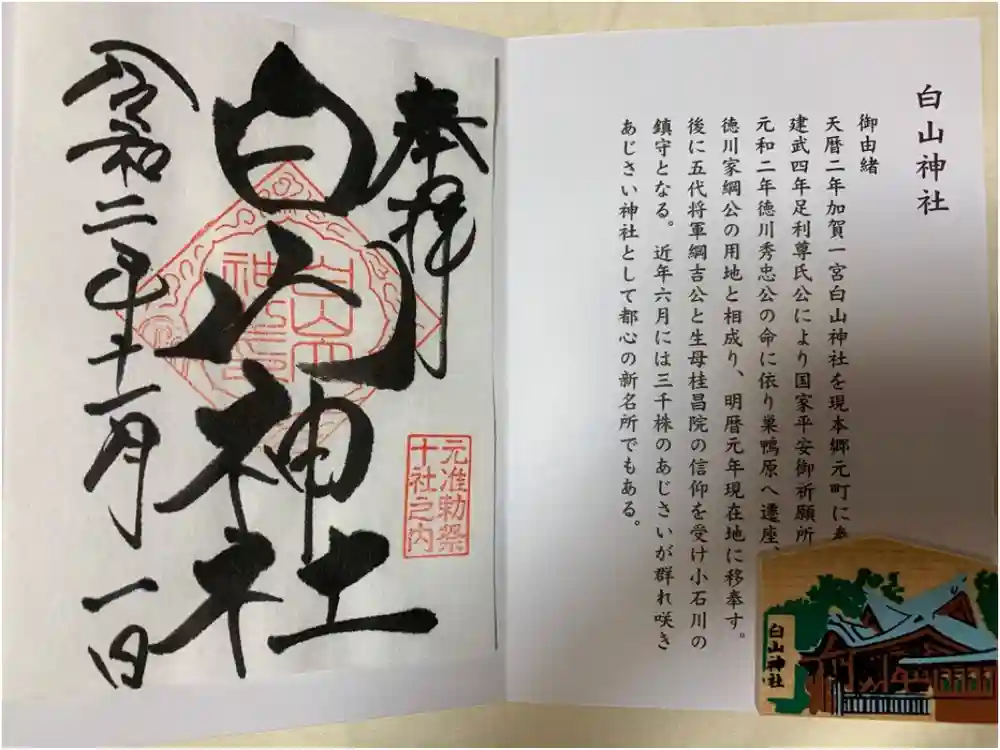 白山神社
御由緒
天暦二年加賀一宮白山神社を現本郷元町に
建武四年足利尊氏公により国家平安御祈願所
元和二年徳川秀忠公の命に依り巣鴨原へ遷座、
徳川家綱公の用地と相成り、明暦元年現在地に移奉す。
後に五代将軍綱吉公と生母桂昌院の信仰を受け小石川の
鎮守となる。近年六月には三千株のあじさいが群れ咲き
あじさい神社として都心の新名所でもある。
白山神社
奉拝
元准勅祭
十社之内
白山神社
令和二年十一月一日